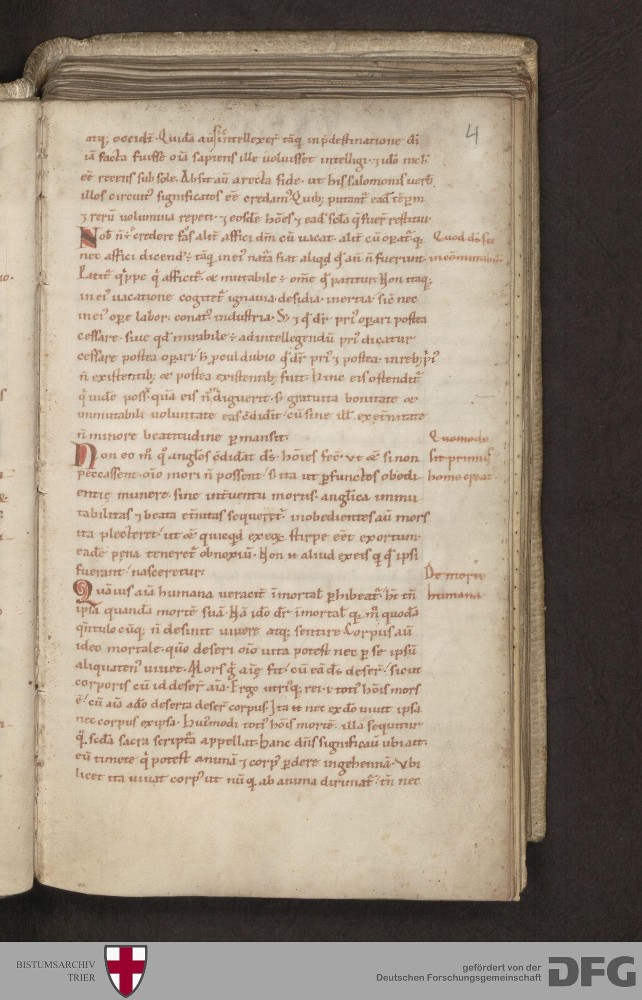 4
atq; occidit. Quidā au sic intellexer̄ tāq̄ in p̄destinatione di
iā facta fuisse oīa sapiens ille uoluisset intelligi. ⁊ ido nichil
ēē recens sub sole. Absit aū a recta fide. ut his salomonis uerb
illos circuit᷒ significatos ēē credam᷒. Quib; putant᷒ eadē tēp̄m
⁊ rerū uolumina repeti. ⁊ eosdē hōes ⁊ eadē
Nob n̄ ÷ credere fas alit᷒ affici dm̄ cū uacat. alit᷒ cū operat᷒. q
nec affici dicend᷒ ÷. tāq̄ in ei᷒ natura fiat aliqd qd an̄ n̄ fuerit.
Quod ds̄ sit
incōmutabil
Patit᷒ q̄ppe q̄ afficit᷒. ⁊ mutabile ÷ om̄e qd patitur. Non itaq;
in ei᷒ uacatione cogitet᷒ ignauia. desidia. inertia. sic nec
in ei᷒ ope labor. conat᷒. industria.
cessare. siue qd mirabile ÷ ad intellegendū
cessare postea opari.
n̄ existentib; ⁊ postea existentib; fuit. Hinc eis ostendit᷒
inmutabili uoluntate eas cōdidit. cū sine ill
n̄ minore beatitudine pmansit.
Quomodo
sit primus
homo creat᷒
Non eo m̄ quo anglos cōdidat ds̄. hōies fec̄. ut ⁊ si non
peccassent. oīo mori n̄ possent. s; ita ut pfunctos obedi
entie munere. sine int̄uentu mortis. anglica inmu
tabilitas ⁊ beata et̄nitas sequeret᷒. inobedientes aū mors
ita plecteret. ut ⁊ quicqd ex eoꝝ stirpe ēēt exortum
eadē pęna teneret᷒ obnoxiū. Non n̄ aliud ex eis q̄ qd ipsi
fuerant. nasceretur.
De morte
humana
Quāuis aīa humana ueracit᷒ īmortal phibeat᷒. h; tn̄
ipsa quandā mortē suā. Nā ido dr̄ īmortal q; m̄ quodā
q̄ntulocūq; n̄ desinit uiuere atq; sentire. Corpus aū
ideo mortale. quō deseri oīo uita potest nec p se ipsū
aliquaten᷒ uiuet. Mors g aīę fit. cū eā ds̄ deserit. sicut
corporis cū id deser̄ aīa. Ergo utri᷒q; rei. i. toti᷒ hōis mors
ē. cū aīa a dō deserta deser̄ corpus. Ita n̄ nec ex dō uiuit ipsa
nec corpus ex ipsa. Hui᷒modi toti᷒ hōis mortē. illa sequitur
q̄ scdā sacra scriptā appellat. Hanc dn̄s significau ubi ait.
eū timete qi potest animā ⁊ corp᷒ pdere in gehennā. Ubi
licet ita uiuat corp᷒ ut nūq̄ ab anima dirimat᷒. tn̄ nec
BISTUMSARCHIV
TRIER
gefördert von der
Deutschen Forschungsgemeinschaft
DFG